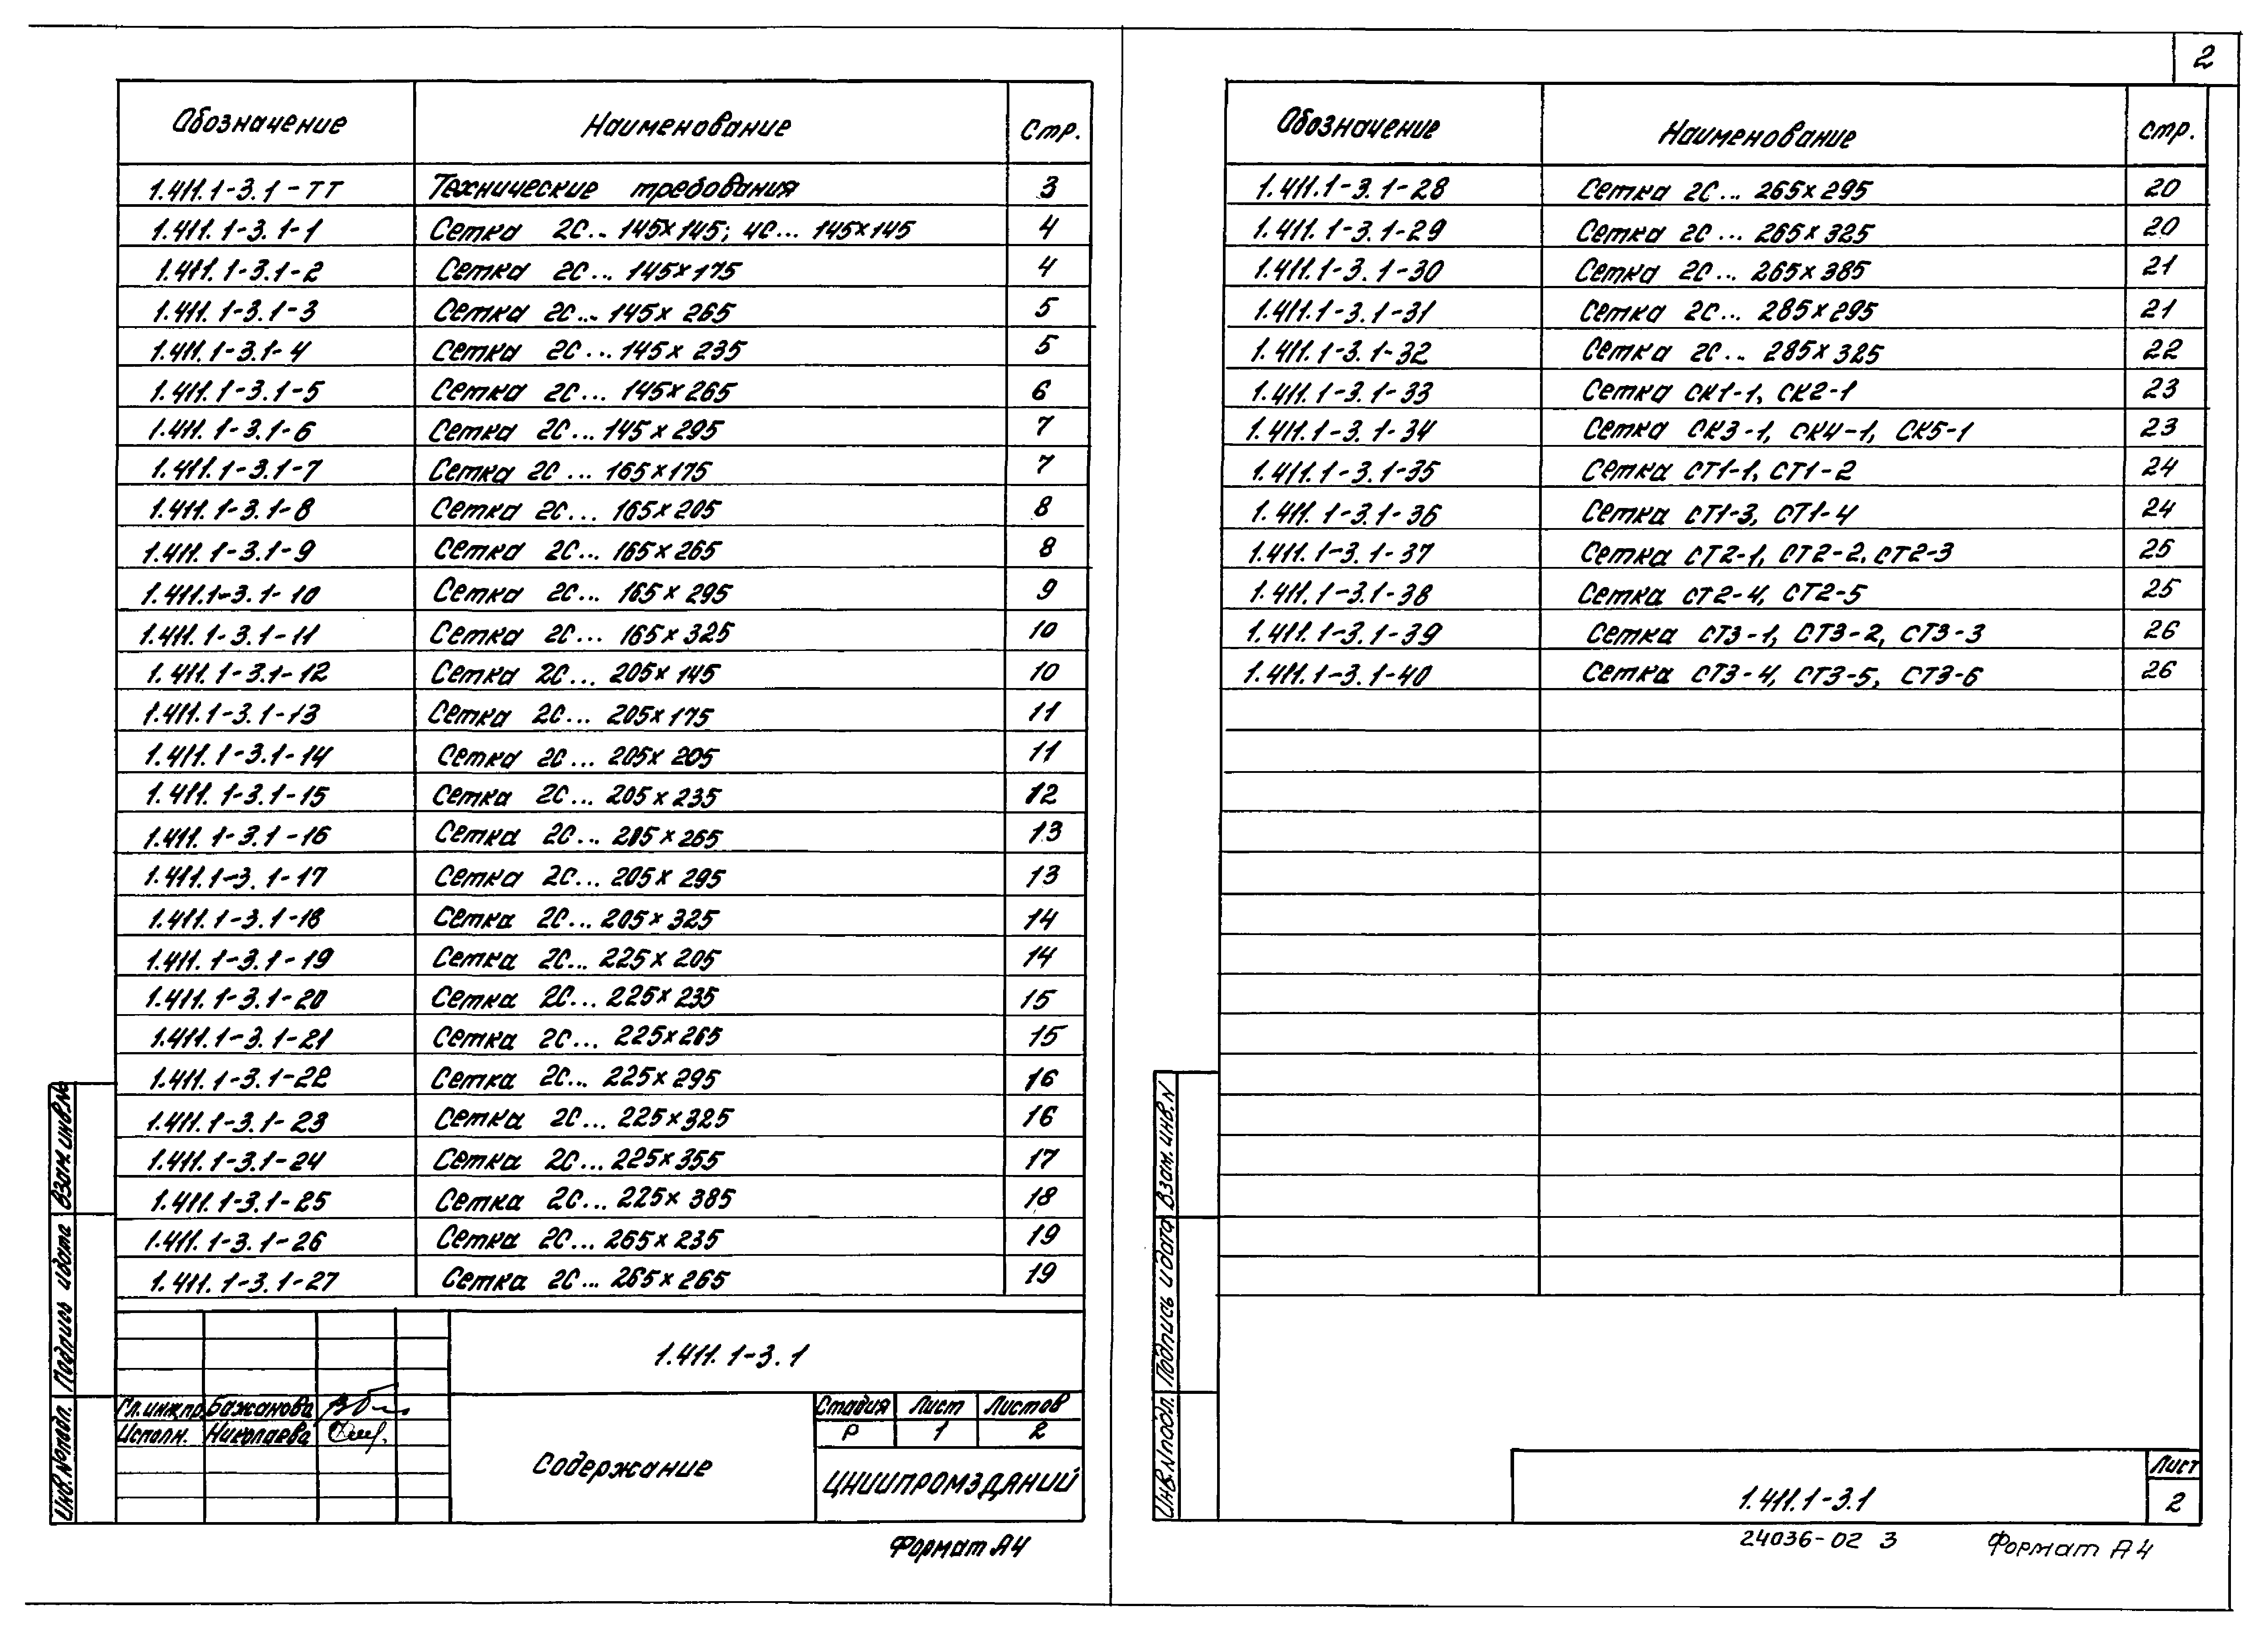 2
Обозначение Наименование Стр.
1.411.1-3.1-ТТ Технические требования 3
1.411.1-3.1-1 Сетка 2С... 145×145; 4С... 145×145 4
1.411.1-3.1-2 Сетка 2С... 145×175 4
1.411.1-3.1-3 Сетка 2С... 145×265 5
1.411.1-3.1-4 Сетка 2С... 145×235 5
1.411.1-3.1-5 Сетка 2С... 145×265 6
1.411.1-3.1-6 Сетка 2С... 145×295 7
1.411.1-3.1-7 Сетка 2С... 165×175 7
1.411.1-3.1-8 Сетка 2С... 165×205 8
1.411.1-3.1-9 Сетка 2С... 165×265 8
1.411.1-3.1-10 Сетка 2С... 165×295 9
1.411.1-3.1-11 Сетка 2С... 165×325 10
1.411.1-3.1-12 Сетка 2С... 205×145 10
1.411.1-3.1-13 Сетка 2С... 205×175 11
1.411.1-3.1-14 Сетка 2С... 205×205 11
1.411.1-3.1-15 Сетка 2С... 205×235 12
1.411.1-3.1-16 Сетка 2С... 205×265 13
1.411.1-3.1-17 Сетка 2С... 205×295 13
1.411.1-3.1-18 Сетка 2С... 205×325 14
1.411.1-3.1-19 Сетка 2С... 225×205 14
1.411.1-3.1-20 Сетка 2С... 225×235 15
1.411.1-3.1-21 Сетка 2С... 225×265 15
1.411.1-3.1-22 Сетка 2С... 225×295 16
1.411.1-3.1-23 Сетка 2С... 225×325 16
1.411.1-3.1-24 Сетка 2С... 225×355 17
1.411.1-3.1-25 Сетка 2С... 225×385 18
1.411.1-3.1-26 Сетка 2С... 265×235 19
1.411.1-3.1-27 Сетка 2С... 265×265 19
1.411.1-3.1
Гл.инж.пр. Бажанова
Исполн. Николаева
Содержание
Стадия Лист Листов
Р 1 2
ЦНИИПРОМЗДАНИЙ
Инв.№подл. Подпись и дата Взам.инв.№
Формат А4
Обозначение Наименование стр.
1.411.1-3.1-28 Сетка 2С... 265×295 20
1.411.1-3.1-29 Сетка 2С... 265×325 20
1.411.1-3.1-30 Сетка 2С... 265×385 21
1.411.1-3.1-31 Сетка 2С... 285×295 21
1.411.1-3.1-32 Сетка 2С... 285×325 22
1.411.1-3.1-33 Сетка СК1-1, СК2-1 23
1.411.1-3.1-34 Сетка СК3-1, СК4-1, СК5-1 23
1.411.1-3.1-35 Сетка СТ1-1, СТ1-2 24
1.411.1-3.1-36 Сетка СТ1-3, СТ1-4 24
1.411.1-3.1-37 Сетка СТ2-1, СТ2-2, СТ2-3 25
1.411.1-3.1-38 Сетка СТ2-4, СТ2-5 25
1.411.1-3.1-39 Сетка СТ3-1, СТ3-2, СТ3-3 26
1.411.1-3.1-40 Сетка СТ3-4, СТ3-5, СТ3-6 26
Инв.Nподл. Подпись и дата Взам.инв.N
1.411.1-3.1
Лист
2
24036-02 3
Формат А4